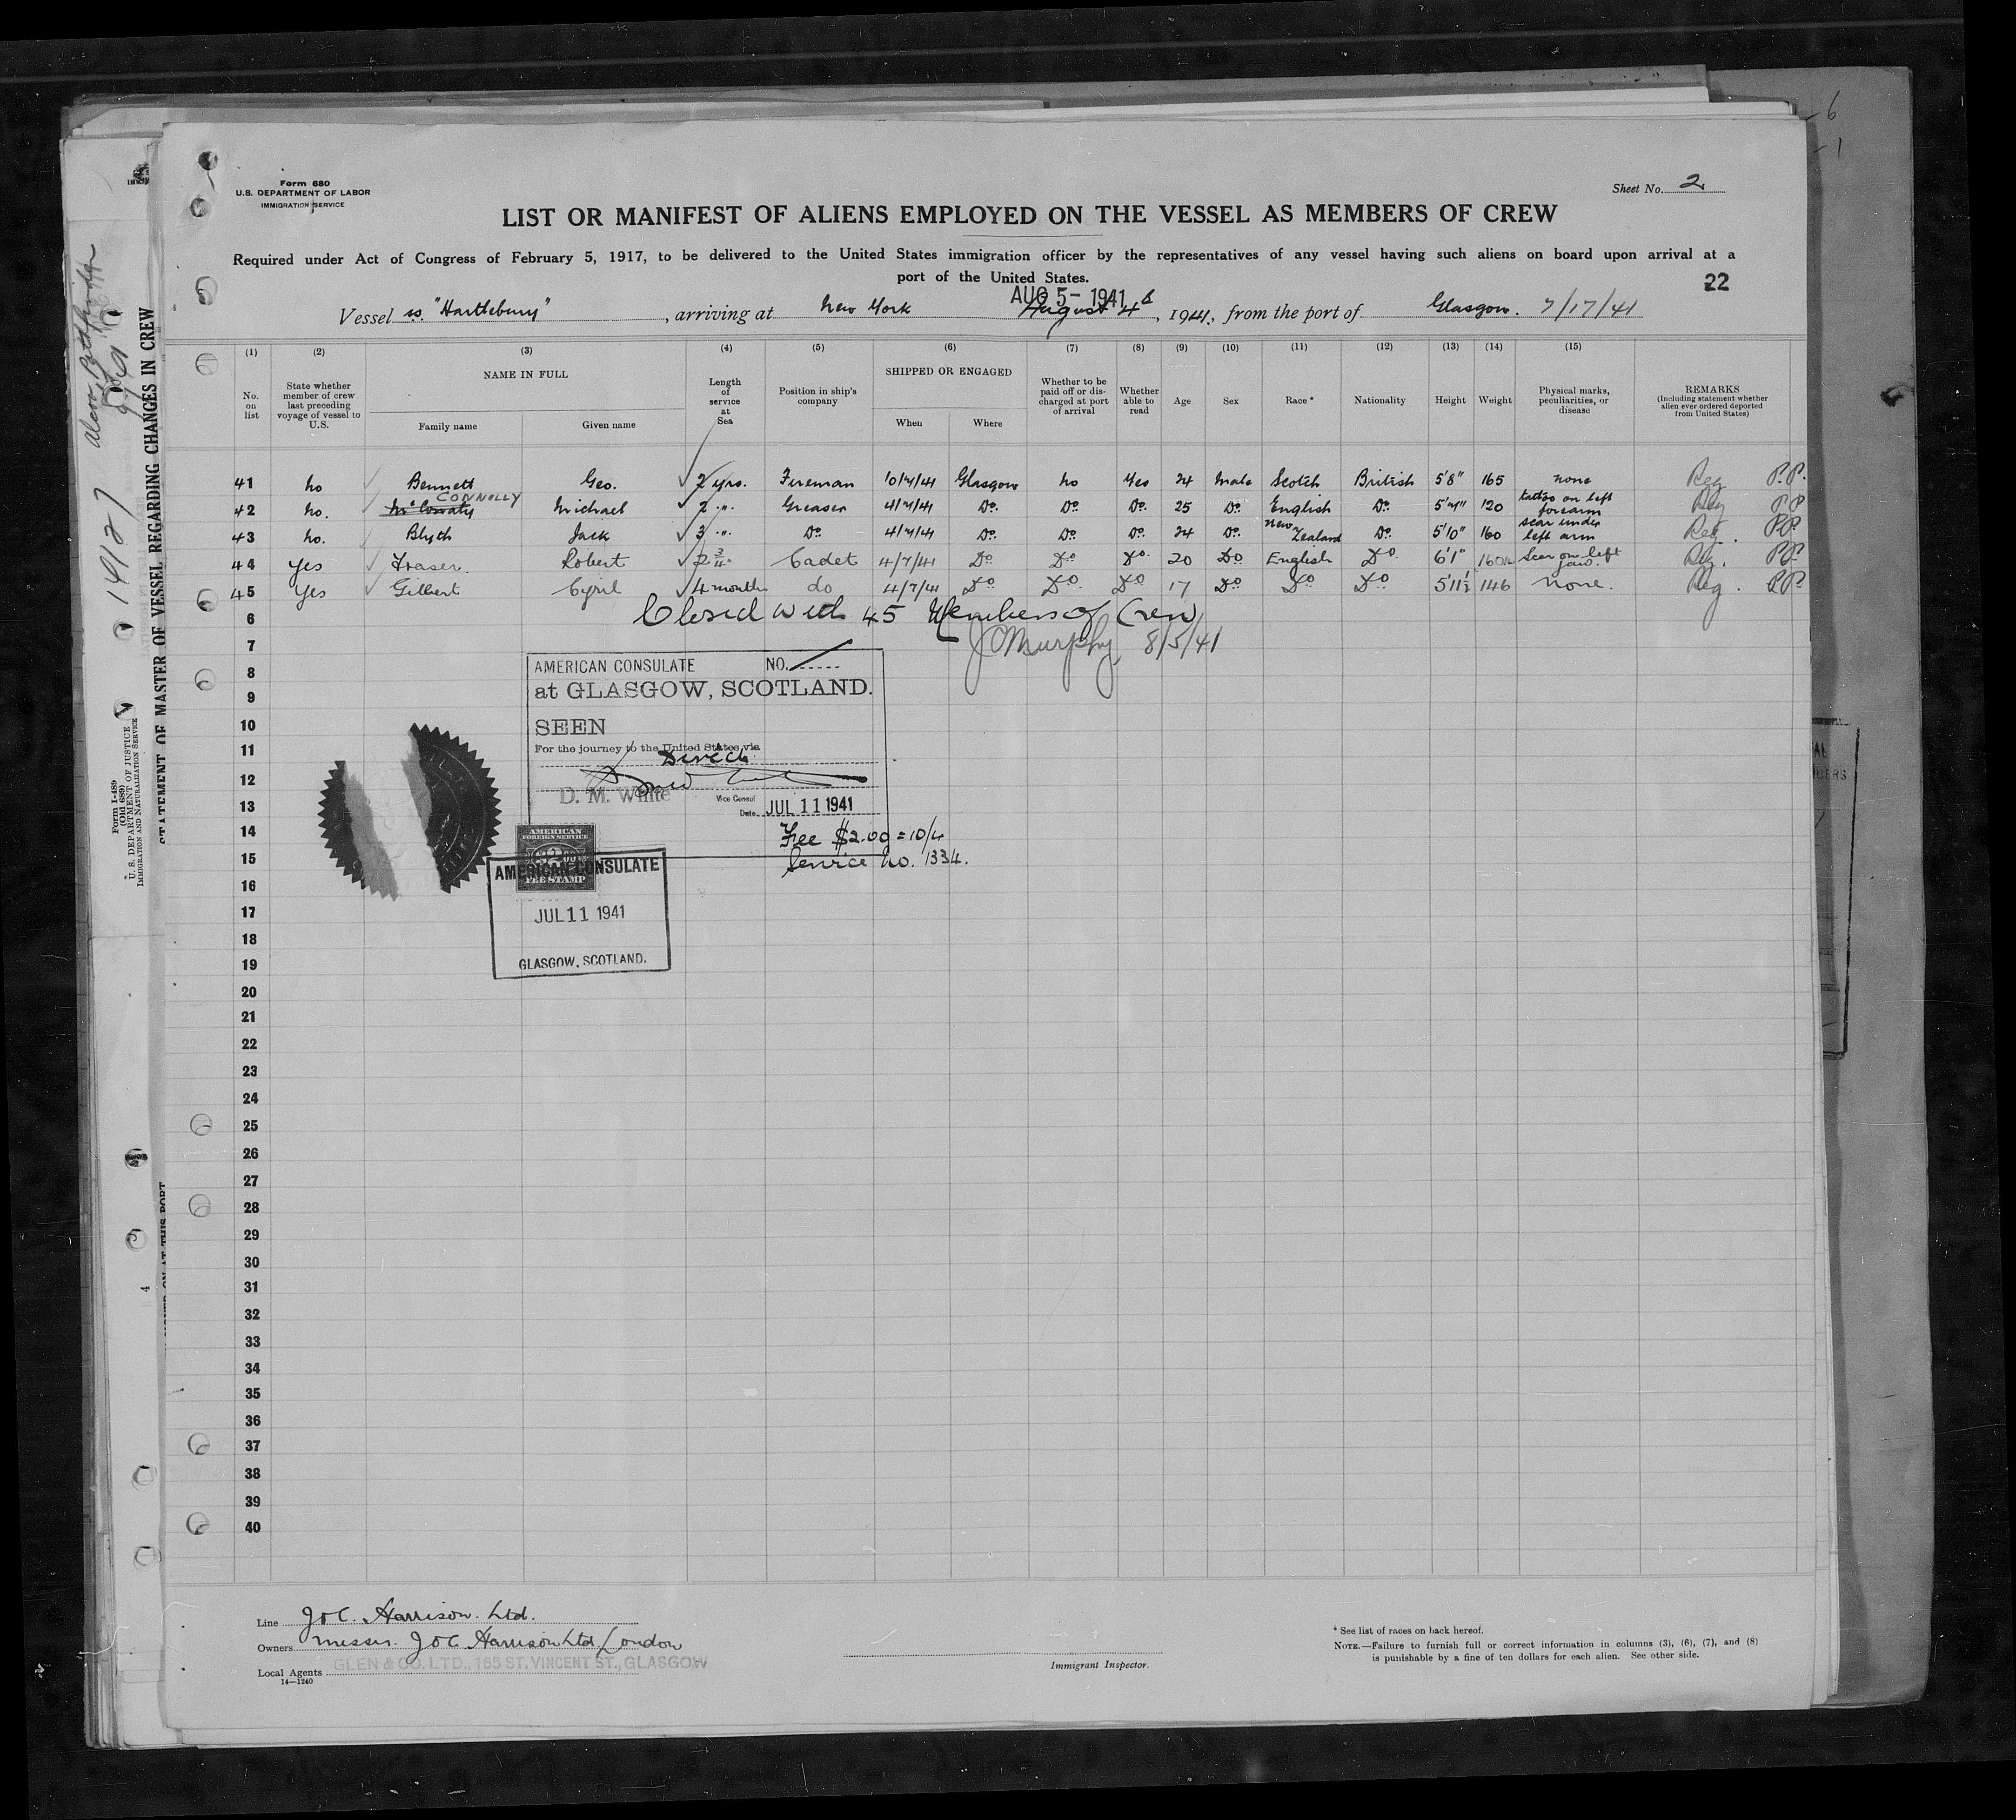 Form 680
U.S. DEPARTMENT OF LABOR
IMMIGRATION SERVICE
Sheet No. 2
LIST OR MANIFEST OF ALIENS EMPLOYED ON THE VESSEL AS MEMBERS OF CREW
Required under Act of Congress of February 5, 1917, to be delivered to the United States immigration officer by the representatives of any vessel having such aliens on board upon arrival at a
port of the United States.
22
AUG 5 - 1941
Vessel ss. "Hartlebury", arriving at New York August 4th, 1941, from the port of Glasgow. 7/17/41
(1) (2) (3) (4) (5) (6) (7) (8) (9) (10) (11) (12) (13) (14) (15)
No. on list
State whether member of crew last preceding voyage of vessel to U.S.
NAME IN FULL
Family name
Given name
Length of service at Sea
Position in ship's company
SHIPPED OR ENGAGED
When
Where
Whether to be paid off or discharged at port of arrival
Whether able to read
Age
Sex
Race *
Nationality
Height
Weight
Physical marks, peculiarities, or disease
REMARKS
(Including statement whether alien ever ordered deported from United States)
41 no Bennett Geo. 2 yrs. Fireman 10/7/41 Glasgow no Yes 24 Male Scotch British 5'8" 165 none Reg P.P.
42 no. McConaty CONNOLLY Michael 2 ". Greaser 4/7/41 Do. Do. Do. 25 Do. English Do. 5'4" 120 tattoo on left forearm Reg P.P
43 no. Blyth Jack 3 ". Do. 4/7/41 Do. Do. Do. 24 Do. New Zealand Do. 5'10" 160 scar under left arm Reg. P.P.
44 Yes Fraser. Robert 2 3/4 " Cadet 4/7/41 Do Do Do. 20 Do English Do. 6'1" 160 Scar on left jaw. Reg. P.P.
45 Yes Gilbert Cyril 4 months do 4/7/41 Do Do. Do 17 Do Do Do 5'11½ 146 None. Reg. P.P.
Closed with 45 Members of Crew
J C Murphy 8/5/41
6
7
8
9
10
11
12
13
14
15
16
17
18
19
20
21
22
23
24
25
26
27
28
29
30
31
32
33
34
35
36
37
38
39
40
AMERICAN CONSULATE NO.
at GLASGOW, SCOTLAND.
SEEN
For the journey to the United States via
Direct
D. M. White Vice Consul
Date. JUL 11 1941
Fee $2.00 = 10/4
Service No. 1334.
AMERICAN
FOREIGN SERVICE
$2.00
FEE STAMP
AMERICAN CONSULATE
JUL 11 1941
GLASGOW, SCOTLAND.
Line J & C. Harrison. Ltd.
Owners Messrs. J & C Harrison Ltd. London
Local Agents GLEN & CO. LTD., 165 ST. VINCENT ST., GLASGOW
14—1240
Immigrant Inspector.
* See list of races on back hereof.
NOTE.—Failure to furnish full or correct information in columns (3), (6), (7), and (8)
is punishable by a fine of ten dollars for each alien. See other side.
STATEMENT OF MASTER OF VESSEL REGARDING CHANGES IN CREW
Form I-489
(Old 689)
U. S. DEPARTMENT OF JUSTICE
IMMIGRATION AND NATURALIZATION SERVICE